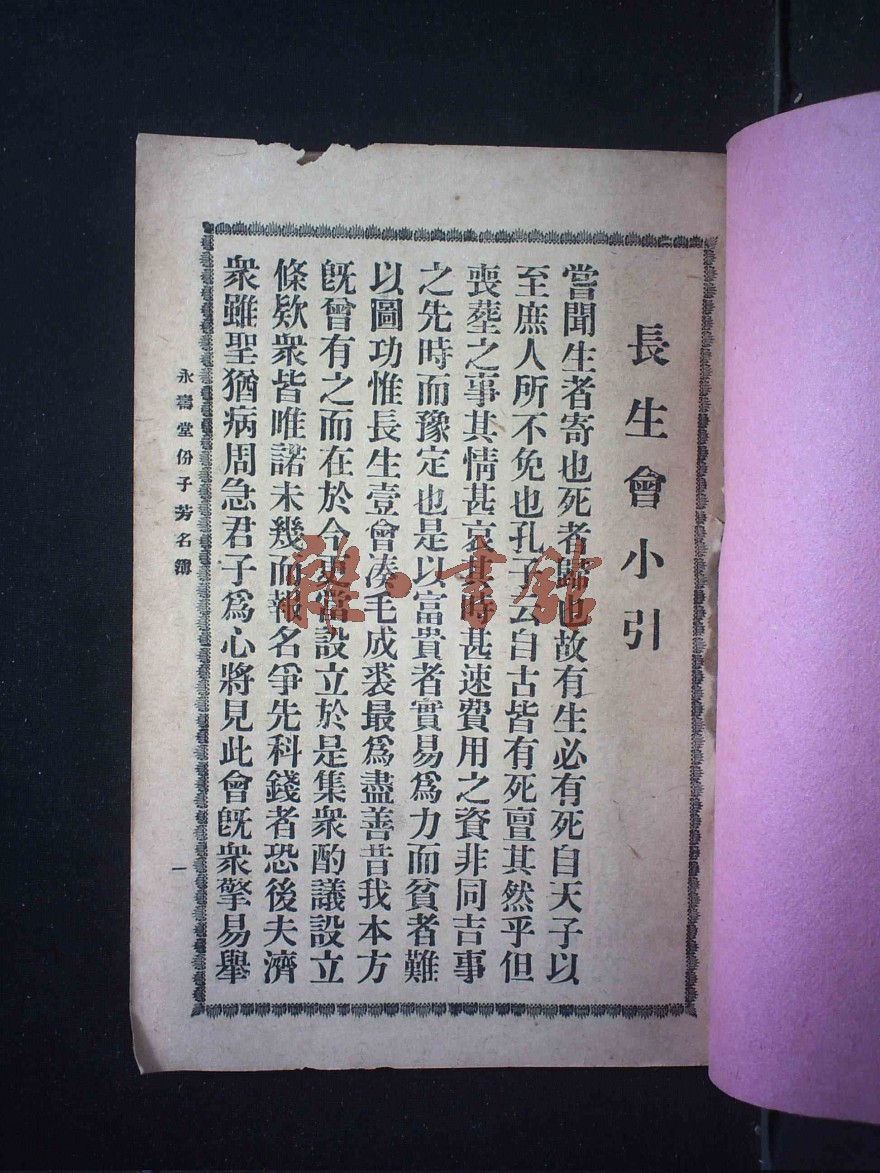 長生會小引
嘗聞生者寄也死者歸也故有生必有死自天子以
至庶人所不免也孔子云自古皆有死亶其然乎但
喪塟之事其情甚哀其時甚速費用之資非同吉事
之先時而豫定也是以富貴者實易爲力而貧者難
以圖功惟長生壹會凑毛成裘最爲盡善昔我本方
旣曾有之而在於今更當設立於是集衆酌議設立
條欵衆皆唯諾未幾而報名爭先科錢者恐後夫濟
衆雖聖猶病周急君子爲心將見此會旣衆擎易舉
永壽堂份子芳名簿
一